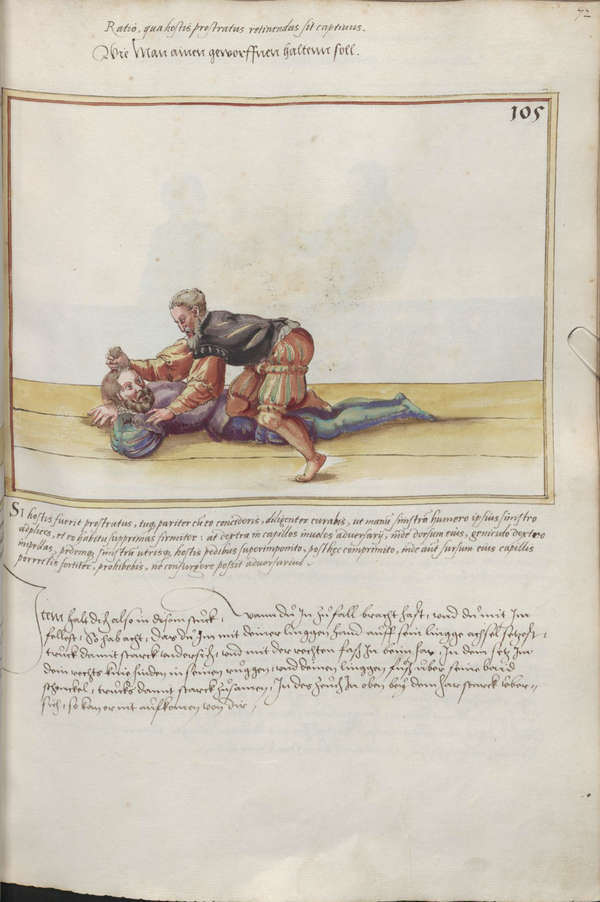 72
Ratio, qua hostis prostratus retinendus sit captivus.
Wie Man ainen geworffnen haltenn soll.
105
SI hostis fuerit prostratus, tuq pariter cu eo concideris, diligenter curabis, ut manu sinistra humero ipsius sinistro
adplices, et eo habitu supprimas firmiter: at dextra in capillos involes adversarij, inde dorsum eius, geniculo dextero
impellas, pedemq sinistru utrisq hostis pedibus superimponito, post hec comprimito, inde aut sursum eius capillis
porrectis fortiter, prohibebis, ne consurgere possit adversarius.
Item halt dich also in disem stuck, wann du In zu fall bracht hast, und du mit Im
fellest, So hab acht, das du Im mit deiner linggen hand auff sein lingge achsel setzest,
truck damit starck undersich, und mit der rechten faß In beim har, In dem setz Im
dein rechts knie hinden in seinen ruggen, und deinen linggen fuß uber seine baid
schenckel, trucks damit starck zusamen, In des zeuch In oben bey dem har starck uber=
sich, so kan er nit aufkomen von dir,